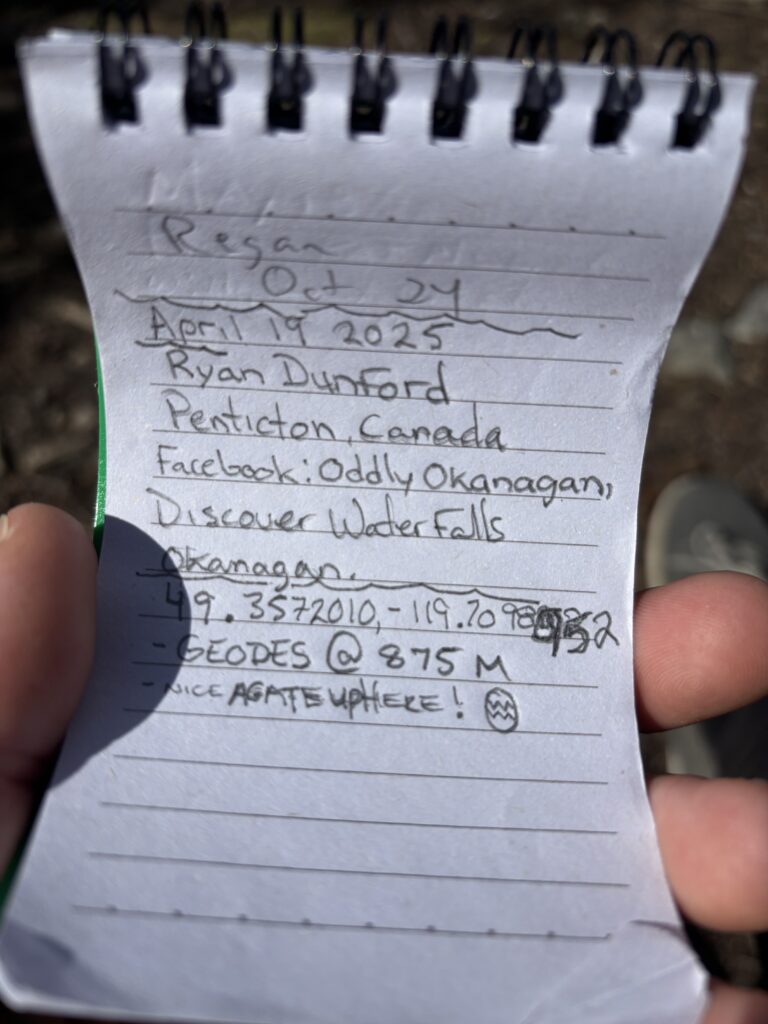 Regan
Oct 24
April 19 2025
Ryan Dunford
Penticton, Canada
Facebook: Oddly Okanagan,
Discover Waterfalls
Okanagan.
49.3572010, -119.7098952
- GEODES @ 875 M
- NICE AGATE UP HERE!